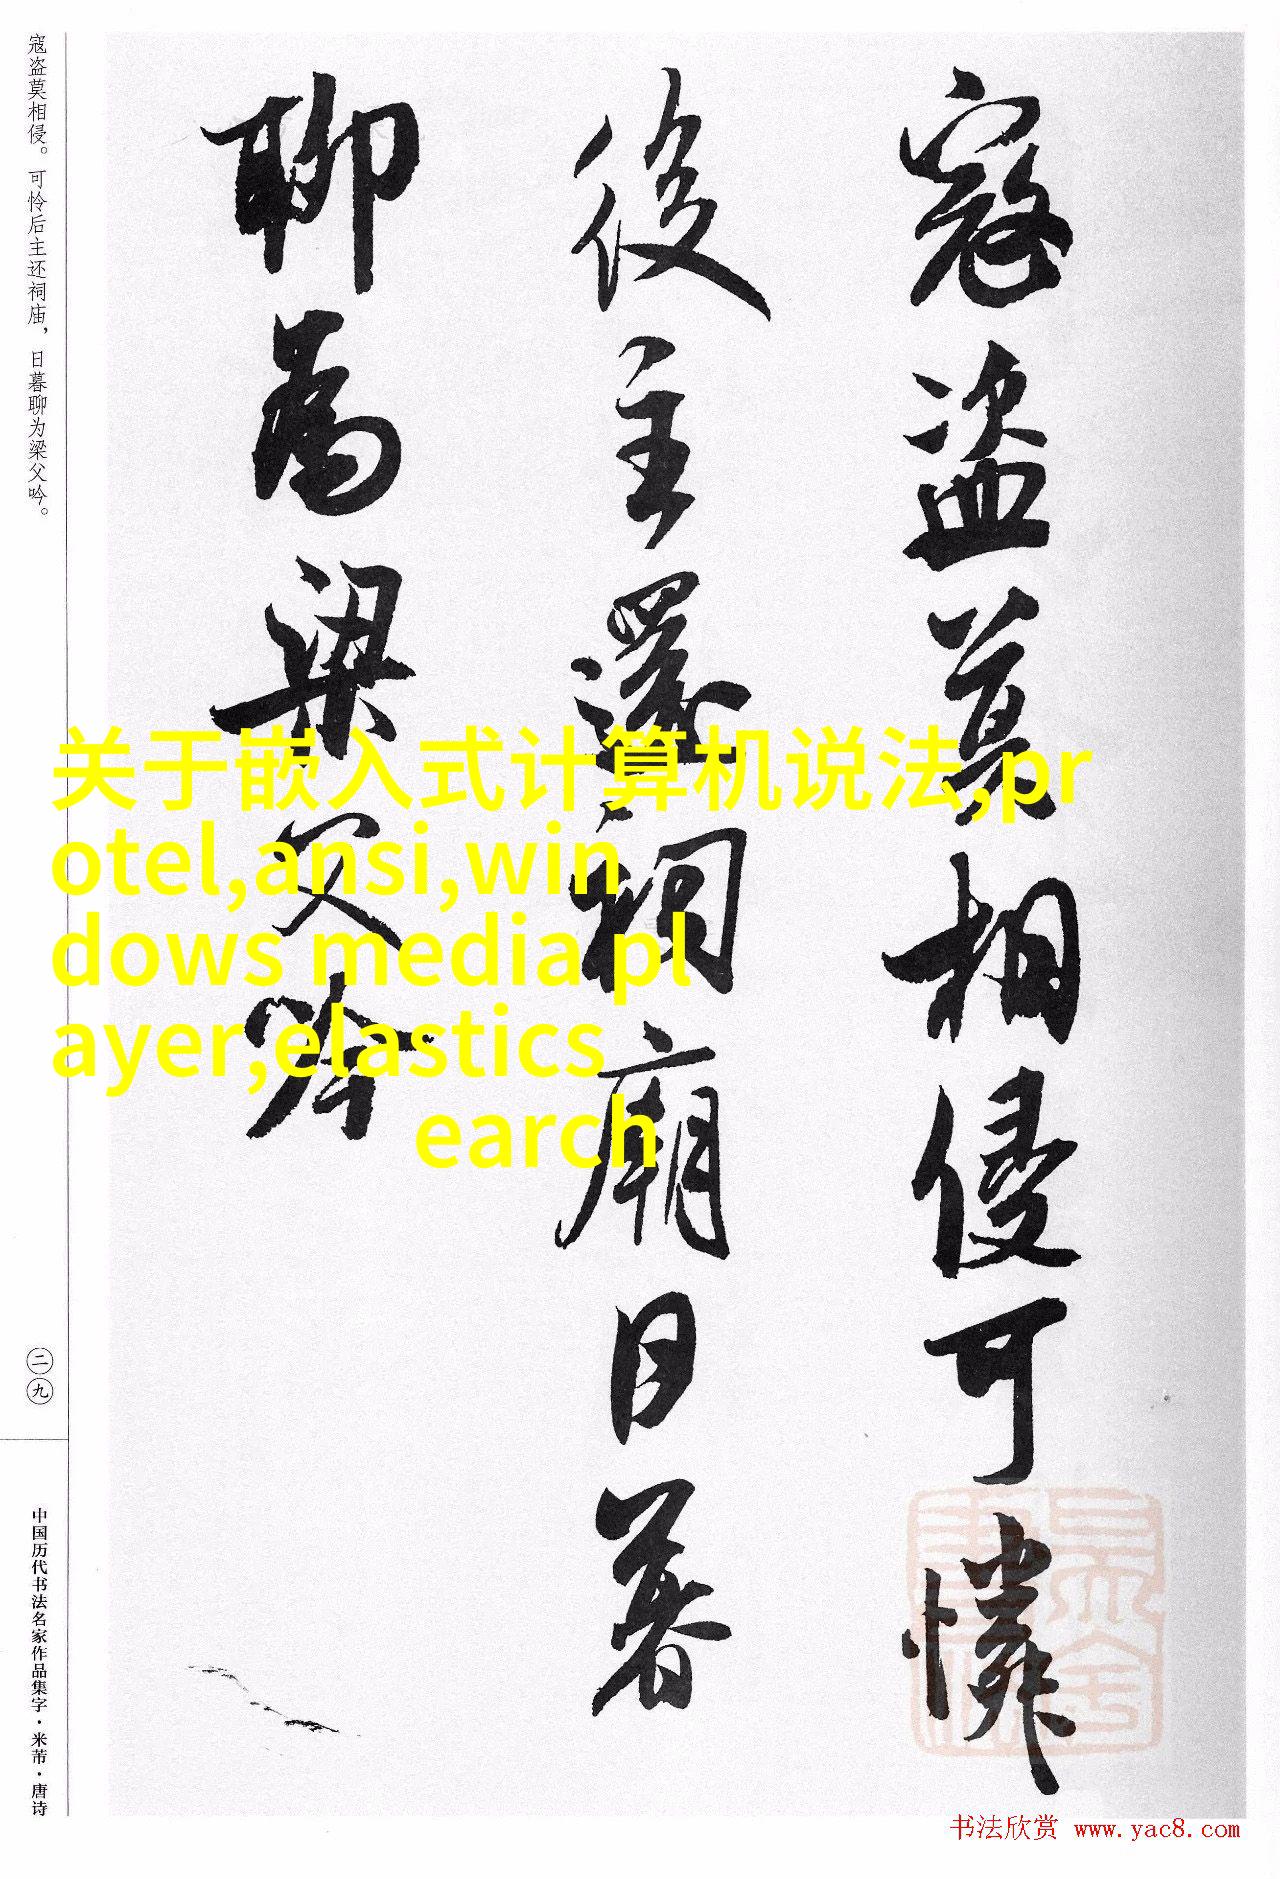 寇盗莫相侵可憐
後主還祠廟日暮
聊為梁父吟
寇盗莫相侵。可怜后主还祠庙，日暮聊为梁父吟。
二九
中国历代书法名家作品集字·米芾·唐诗
关于嵌入式计算机说法,pr
otel,ansi,win
dows media pl
ayer,elastics
earch
书法欣赏 www.yac8.com